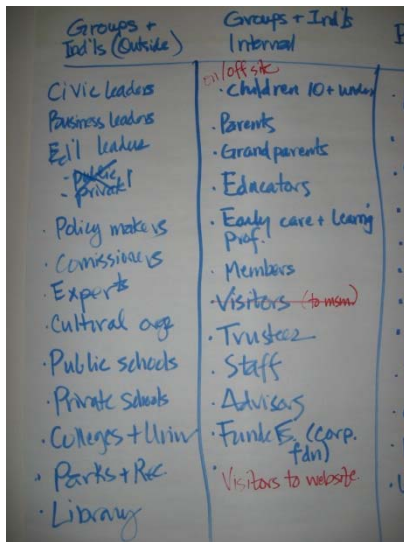 Groups +
Ind'ls (Outside)
Civic leaders
Business leaders
Ed'l leaders
- Public
- Private
· Policy makers
· Comissioners
· Experts
· Cultural orgs
· Public schools
· Private schools
· Colleges + Univ
· Parks + Rec.
· Library
Groups + Ind'ls
Internal
on/off site
· Children 10 + under
· Parents
· Grandparents
· Educators
· Early care + learning
Prof.
· Members
· Visitors (to msm)
· Trustees
· Staff
· Advisors
· Funders (corp.
fdn)
Visitors to website